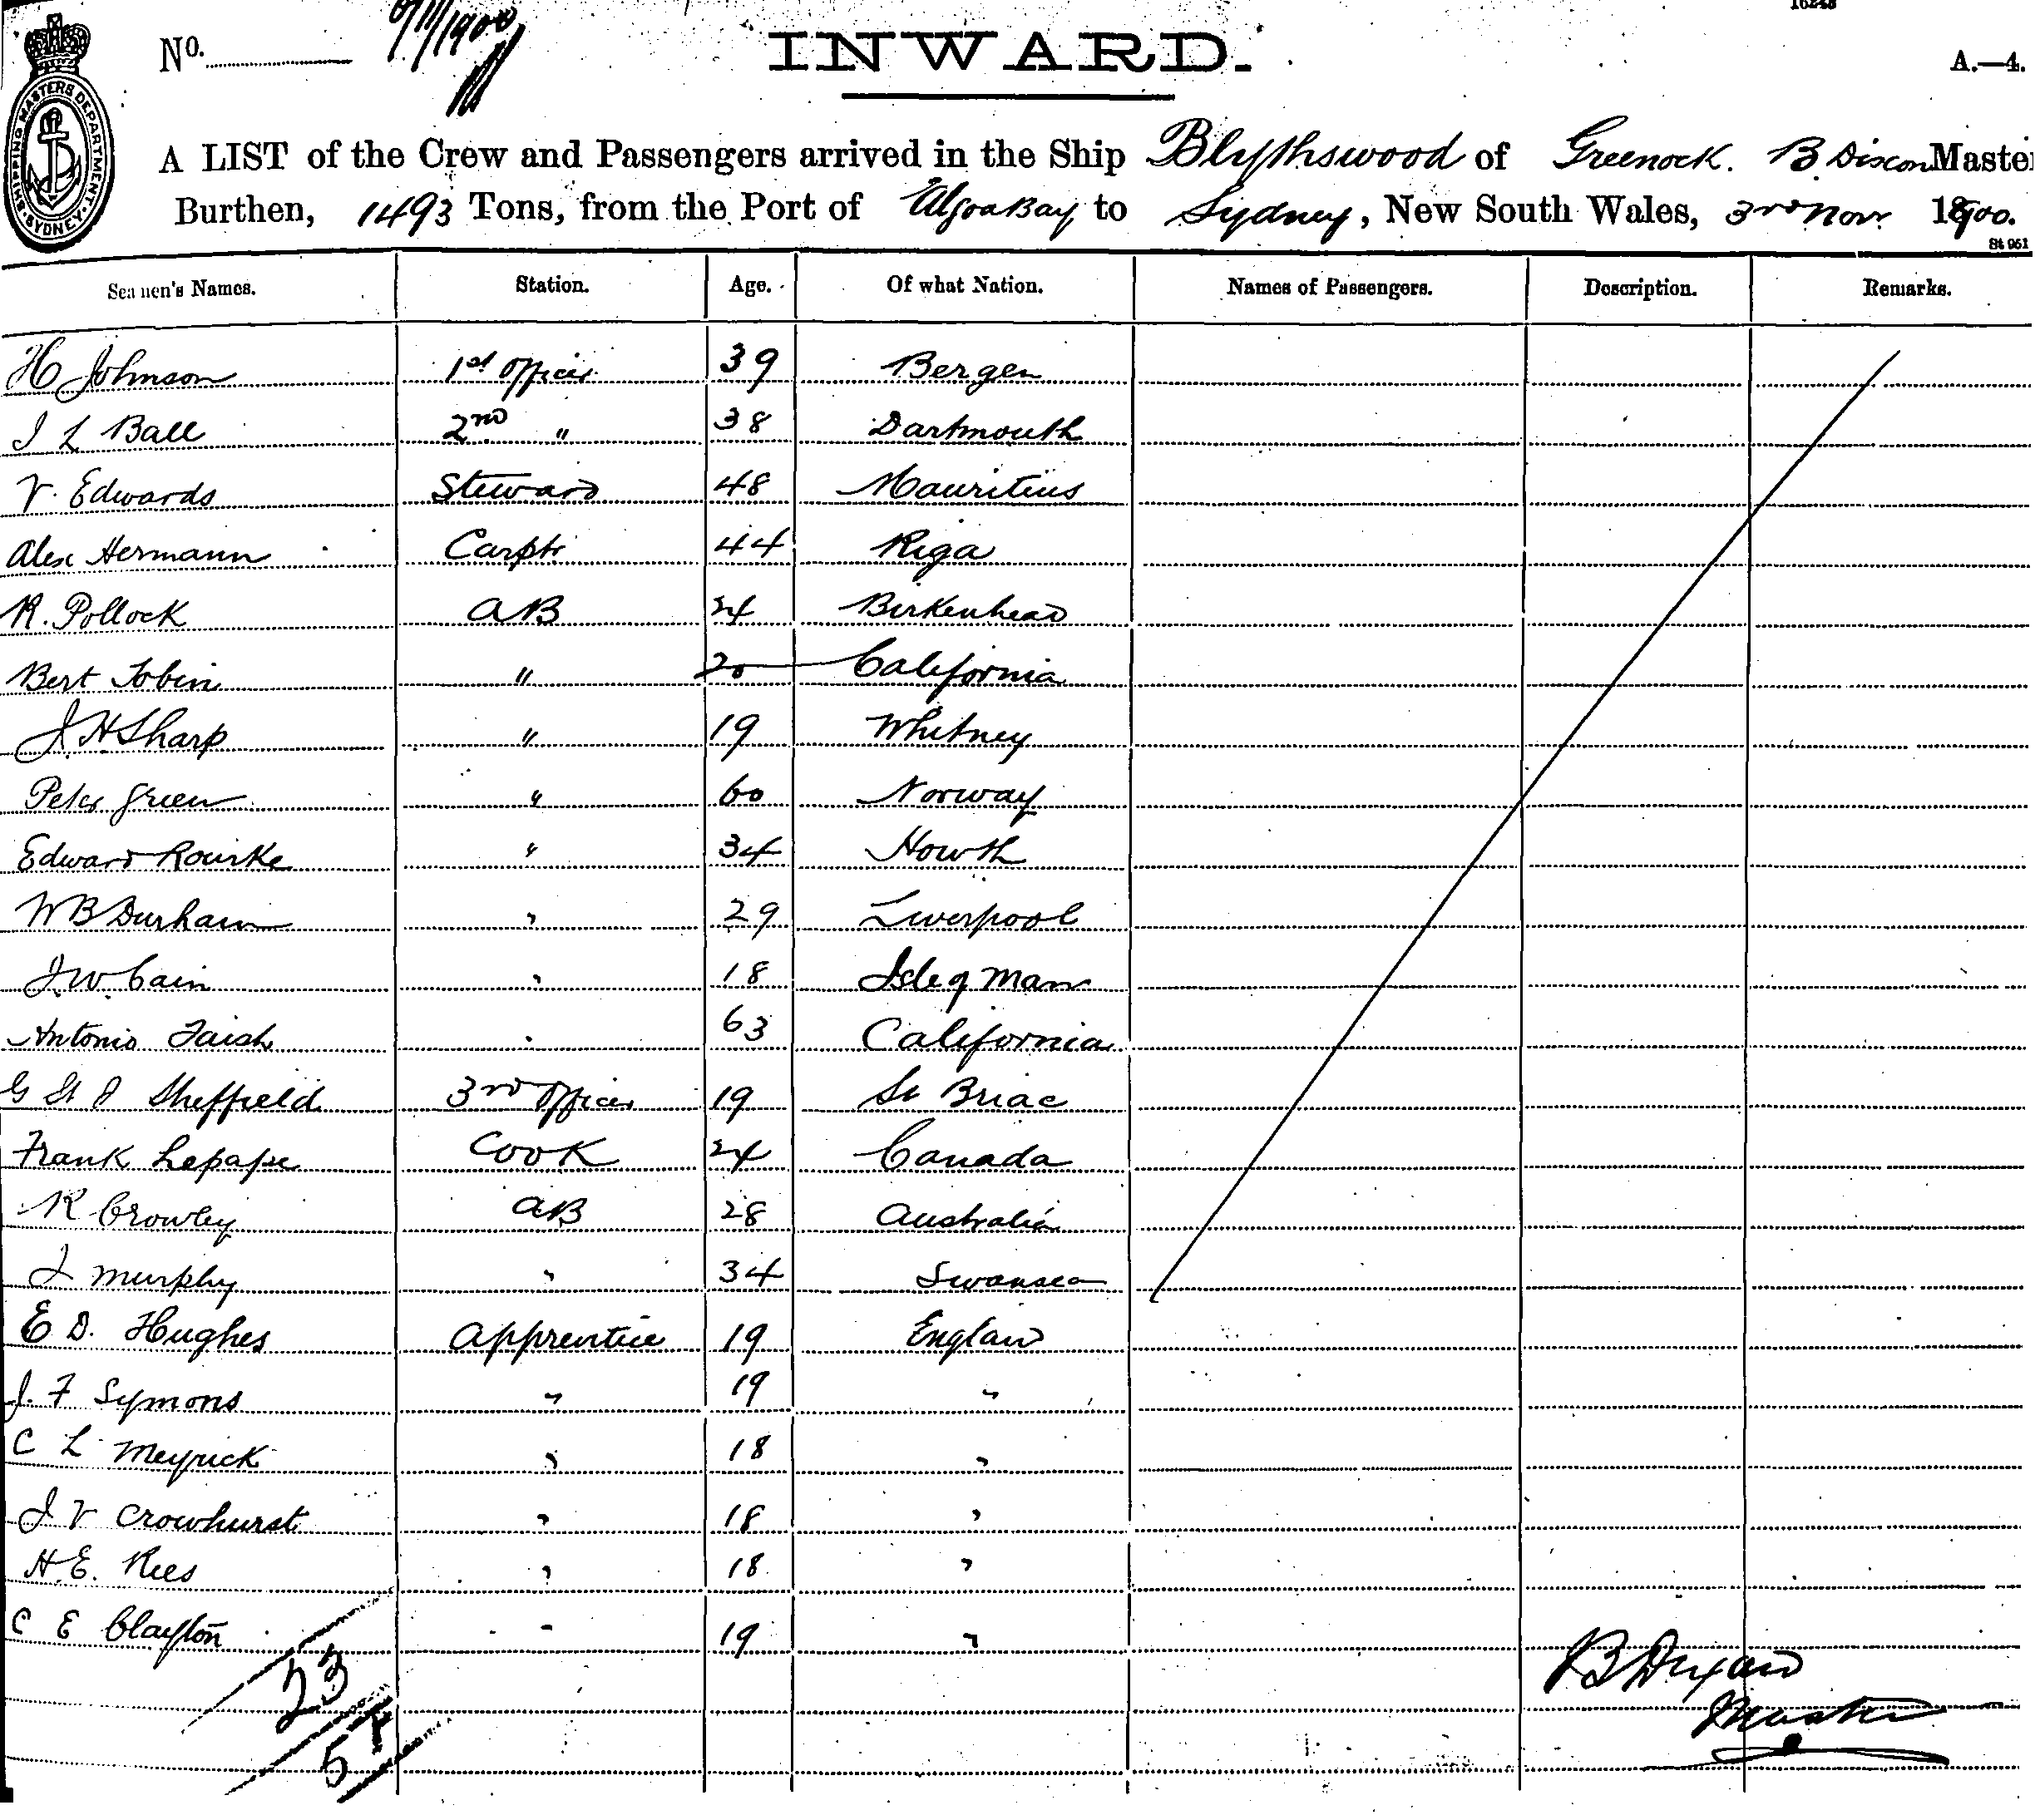 16248
No.
9/11/1900
INWARD.
A.—4.
SHIPPING MASTERS DEPARTMENT. SYDNEY.
A LIST of the Crew and Passengers arrived in the Ship Blythswood of Greenock. B. Master
Burthen, 1493 Tons, from the Port of Algoa Bay to Sydney, New South Wales, 3rd Novr 1900.
St 951
Seamen's Names. Station. Age. Of what Nation. Names of Passengers. Description. Remarks.
H Johnson 1st Officer 39 Bergen
J L Ball 2nd " 38 Dartmouth
V. Edwards Steward 48 Mauritius
Alex Hermann Carptr 44 Riga
R. Pollock AB 24 Birkenhead
Bert Tobin " 20 California
J. H Sharp " 19 Whitney
Peter Green " 60 Norway
Edward Rourke " 34 Howth
W B Durham " 29 Liverpool
J. W. Cain " 18 Isle of Man
Antonio " 63 California
G St J Sheffield 3rd Officer 19 St Briac
Frank Lepape Cook 24 Canada
R Crowley AB 28 Australia
J Murphy " 34 Swansea
E D. Hughes Apprentice 19 England
J. F Symons " 19 "
C L Meyrick " 18 "
J V Crowhurst " 18 "
H. E. Rees " 18 "
C E Clayton " 19 "
23
B
Master